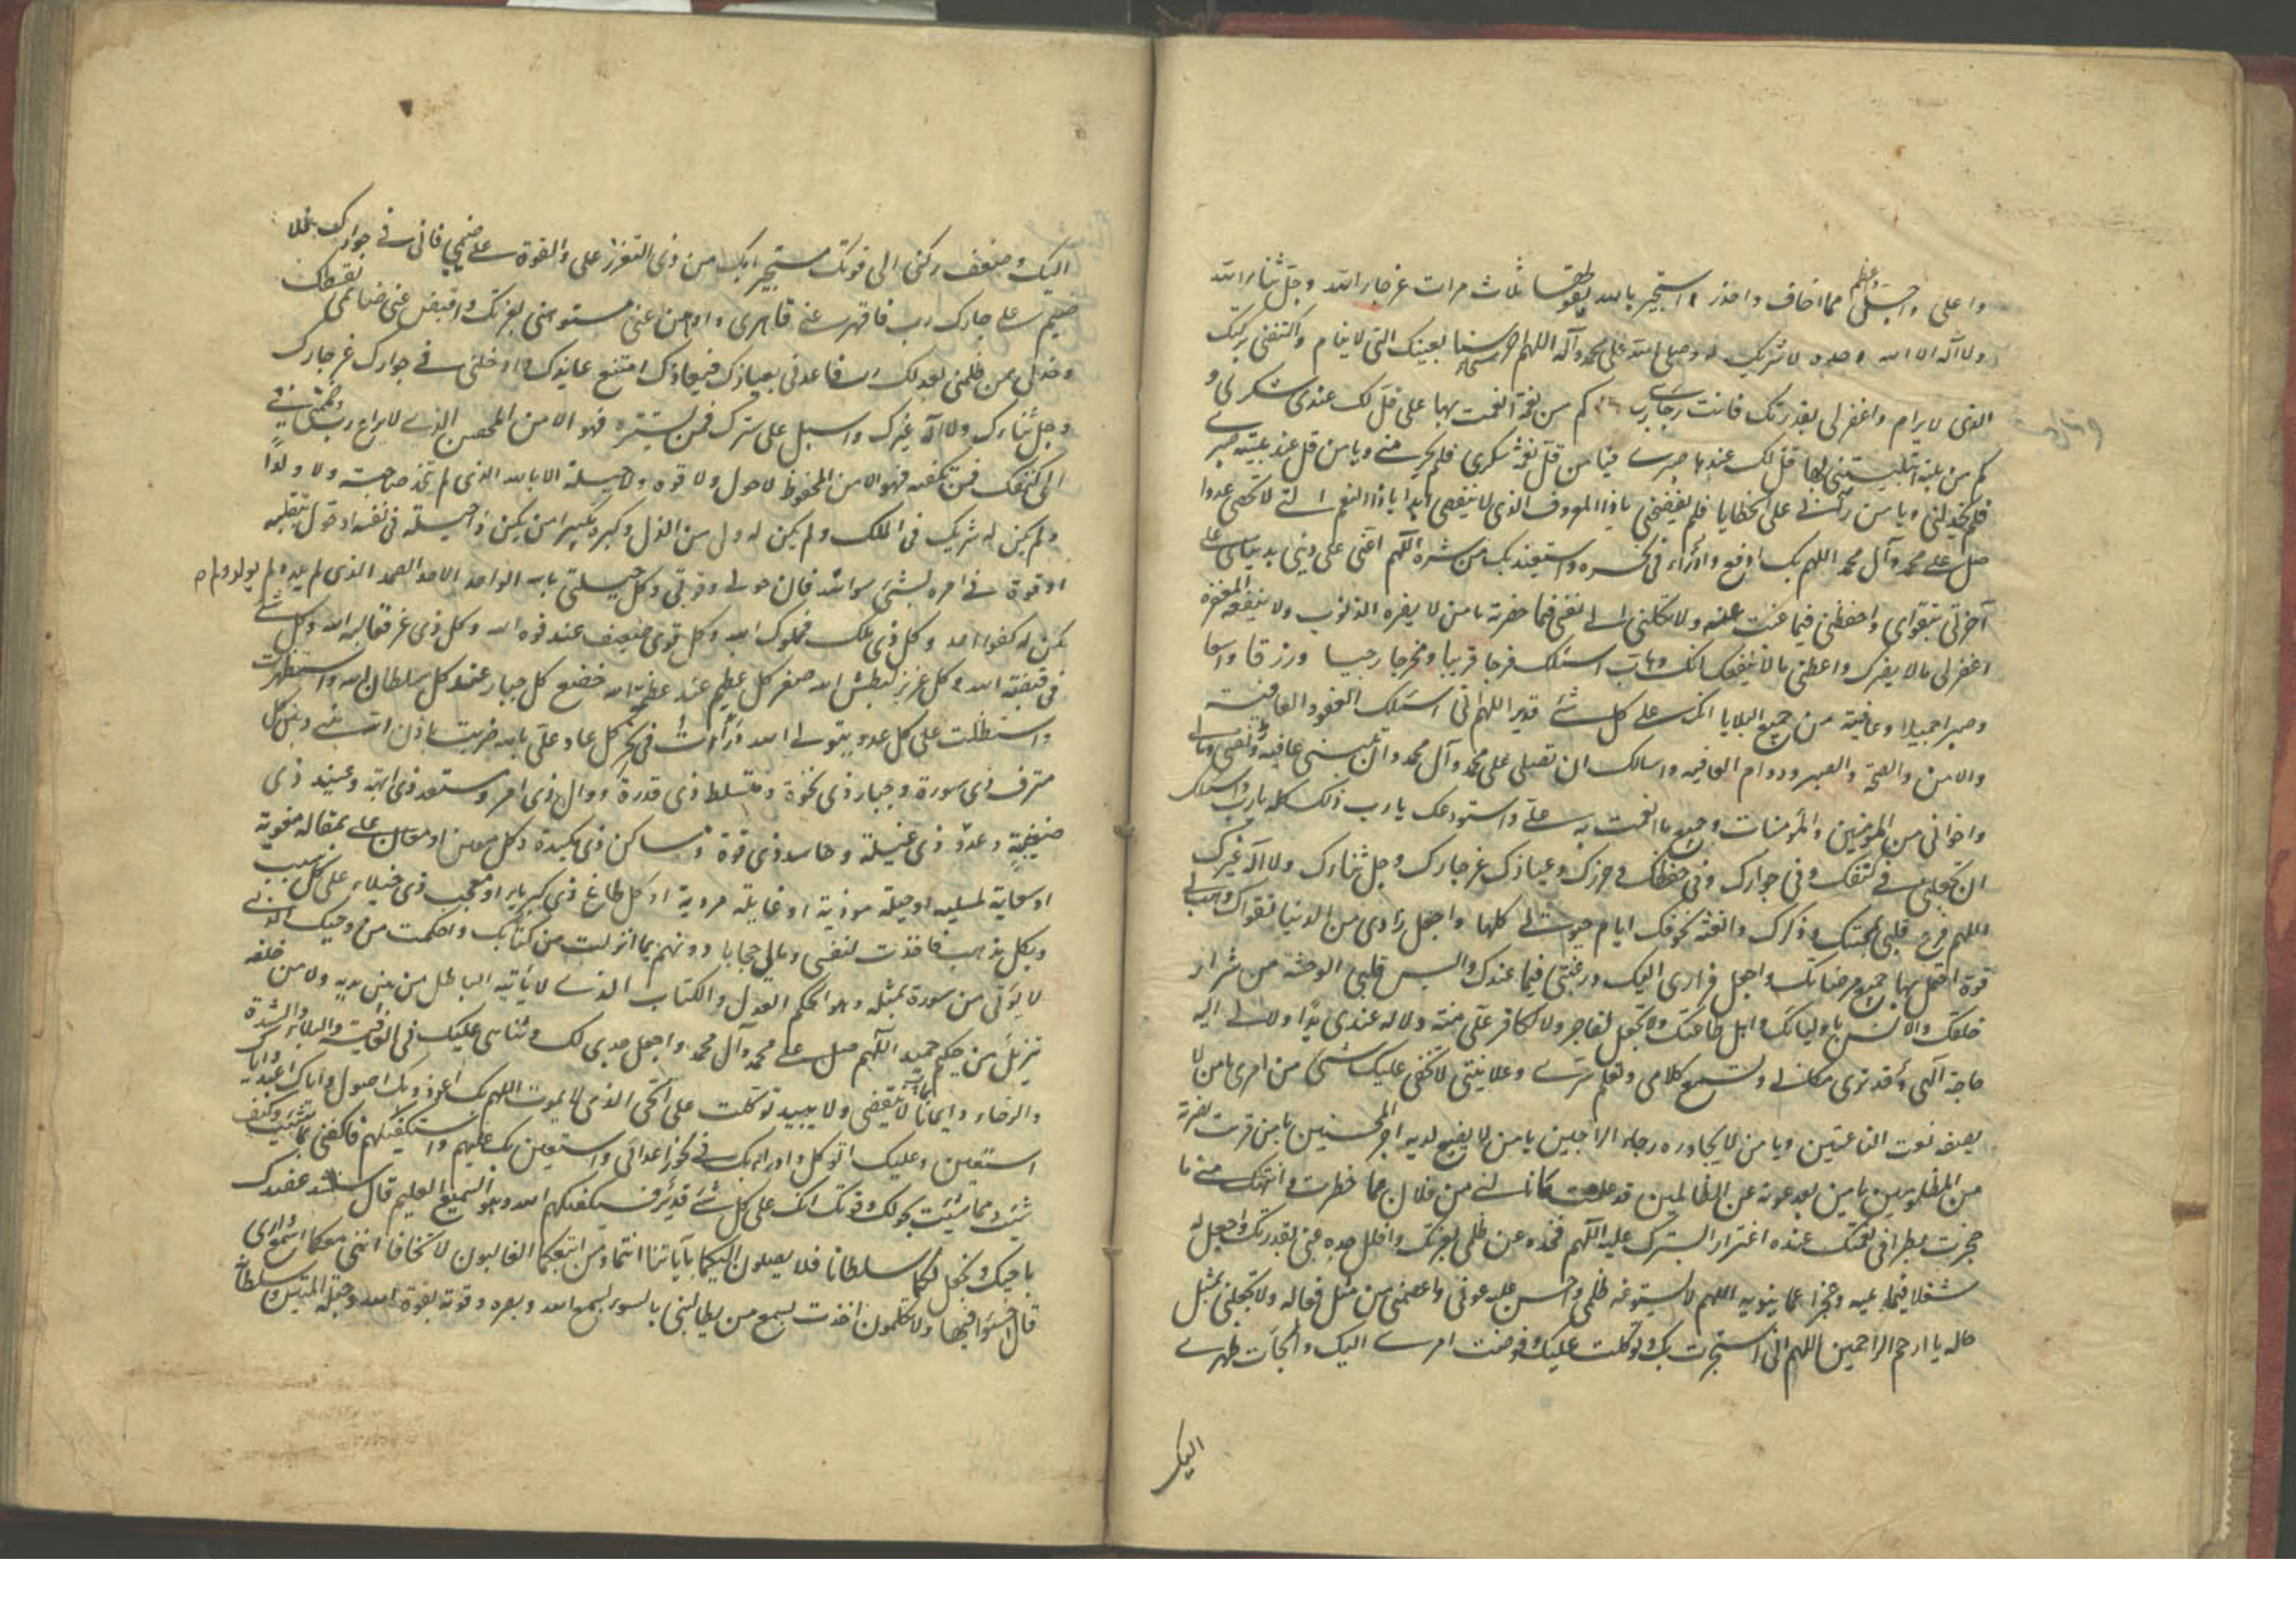 واعلى واجل واعظم مما اخاف واحذر استجير بالله يقولها ثلاث مرات عز جار الله وجل ثناء الله
ولا اله الا الله وحده لا شريك له وصلى الله على محمد وآله اللهم احرسنا بعينك التي لا ينام واكنفني بركنك
الذي لا يرام واغفر لي بقدرتك فانت رجائي رب كم من نعمة انعمت بها علي قل لك عندي شكري و
كم من بلية ابتليتني بها قل لك عندها صبري فيا من قل عند نعمته شكري فلم يحرمني ويا من قل عند بليته صبري
فلم يخذلني ويا من رآني على الخطايا فلم يفضحني يا ذا المعروف الذي لا ينقضي ابدا يا ذا النعم التي لا تحصى عددا
صل على محمد وآل محمد اللهم بك ادفع وادرأ في نحره واستعيذ بك من شره اللهم اعني على ديني بدنياي وعلى
آخرتي بتقواي واحفظني فيما غبت عنه ولا تكلني الى نفسي فيما حضرته يا من لا يضره الذنوب ولا ينقصه المغفرة
اغفر لي ما لا يضرك واعطني ما لا ينقصك انك وهاب اسئلك فرجا قريبا ومخرجا رحيبا ورزقا واسعا
وصبرا جميلا وعافية من جميع البلايا انك على كل شئ قدير اللهم اني اسئلك العفو والعافية
والامن والصحة والصبر ودوام العافيه واسالك ان تصلي على محمد وآل محمد وان تلبسني عافيتك في نفسي ومالي
واخواني من المؤمنين والمؤمنات وجميع ما انعمت به علي واستودعك يا رب ذلك كله يا رب واسئلك
ان تجعلني في كنفك وفي جوارك وفي حفظك وحرزك وعياذك عز جارك وجل ثناؤك ولا اله غيرك
اللهم فرغ قلبي لمحبتك وذكرك وانعشه بخوفك ايام حيوتي كلها واجعل زادي من الدنيا تقواك وهب لي
قوة احتمل بها جميع مرضاتك واجعل فراري اليك ورغبتي فيما عندك والبس قلبي الوحشة من شرار
خلقك والانس باوليائك واهل طاعتك ولا تجعل لفاجر ولا لكافر علي منة ولا له عندي يدا ولا لي اليه
حاجة الهي قد ترى مكاني وتسمع كلامي وتعلم سري وعلانيتي لا تخفى عليك شئ من امري يا من لا
يصفه نعت الناعتين ويا من لا يجاوزه رجاء الراجين يا من لا يضيع لديه اجر المحسنين يا من قربت نصرته
من المظلومين يا من بعد عونه عن الظالمين قد علمت ما نالني من فلان مما حظرت وانتهك مني ما
حجزت بطرا في نعمتك عنده اغترارا بسترك عليه اللهم فخذه عن ظلمي بعزتك وافلل حده عني بقدرتك واجعل له
شغلا فيما يليه وعجزا عما ينويه اللهم لا تسوغه ظلمي واحسن عليه عوني واعصمني من مثل فعاله ولا تجعلني بمثل
حاله يا ارحم الراحمين اللهم اني استجرت بك وتوكلت عليك وفوضت امري اليك والجأت ظهري
اليك
اليك وضعف ركني الى قوتك مستجيرا بك من ذي التعزز علي والقوة على ضيمي فاني في جوارك فلا
ضيم على جارك رب فاقهر عني قاهري واوهن عني مستوهني بعزتك واقبض عني ضائمي بقسطك
وخذ لي ممن ظلمني بعدلك رب فاعذني بعياذك فبعياذك امتنع عائذك وادخلني في جوارك عز جارك
وجل ثناؤك ولا اله غيرك واسبل علي سترك فمن تستره فهو الامن المحصن الذي لا يراع رب وضمني في
الى كنفك فمن تكنفه فهو الامن المحفوظ لا حول ولا قوة ولا حيلة الا بالله الذي لم يتخذ صاحبة ولا ولدا
ولم يكن له شريك في الملك ولم يكن له ولي من الذل وكبره تكبيرا من يكن ذا حيلة في نفسه او حول بتقلبه
او قوة في امره بشئ سوى الله فان حولي وقوتي وكل حيلتي بالله الواحد الاحد الصمد الذي لم يلد ولم يولد ولم
يكن له كفوا احد وكل ذي ملك فمملوك الله وكل قوي ضعيف عند قوة الله وكل ذي عز فغالبه الله وكل شئ
في قبضة الله وكل عزيز لبطش الله صغر كل عظيم عند عظمة الله خضع كل جبار عند كل سلطان الله واستظهرت
واستطلت على كل عدو بتولي الله درأت في نحر كل عاد علي بالله ضربت باذن الله بيني وبين كل
مترف ذي سورة وجبار ذي نخوة ومتسلط ذي قدرة ووال ذي امرة ومستعد ذي ابهة وعنيد ذي
ضغينة وعدو ذي غيلة وحاسد ذي قوة وماكر ذي مكيدة وكل معين او معان علي بمقالة مغوية
او سعاية مسلبة او حيلة موذية او غايلة مردية او كل طاغ ذي كبرياء او معجب ذي خيلاء على كل سبب
وبكل مذهب فاخذت لنفسي ومالي حجابا دونهم بما انزلت من كتابك واحكمت من وحيك الذي
لا يؤتى من سورة بمثله وهو الحكم العدل والكتاب الذي لا يأتيه الباطل من بين يديه ولا من خلفه
تنزيل من حكيم حميد اللهم صل على محمد وآل محمد واجعل حمدي لك وثنائي عليك في العافية والبلاء والشدة
والرخاء دائما لا ينقضي ولا يبيد توكلت على الحي الذي لا يموت اللهم بك اعوذ وبك اصول واياك اعبد واياك
استعين وعليك اتوكل وادرأ بك في نحور اعدائي واستعين بك عليهم واستكفيكهم فاكفنيهم بما شئت وكيف
شئت ومما شئت بحولك وقوتك انك على كل شئ قدير فسيكفيكهم الله وهو السميع العليم قال سنشد عضدك
باخيك ونجعل لكما سلطانا فلا يصلون اليكما بآياتنا انتما ومن اتبعكما الغالبون لا تخافا انني معكما اسمع وارى
قال اخسؤا فيها ولا تكلمون اخذت بسمع من يطالبني بالسوء بسمع الله وبصره وقوته بقوة الله وحبله المتين وسلطانه